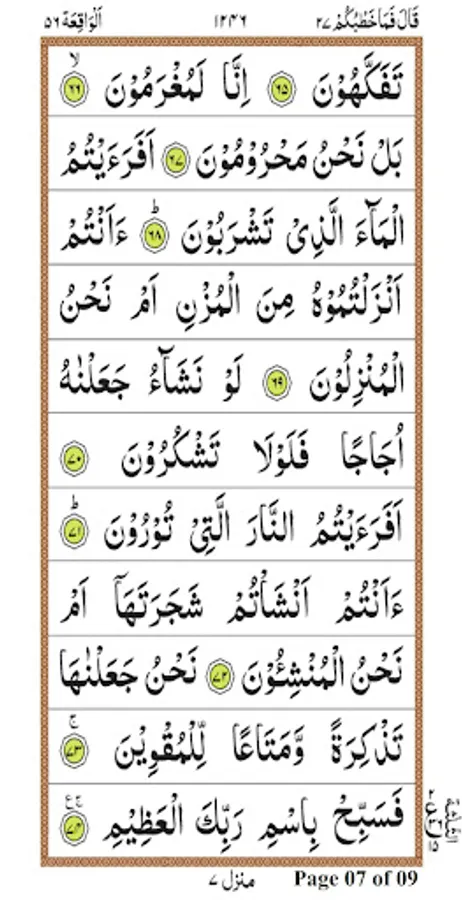 قَالَ فَمَا خَطْبُكُمْ ٢٧ ١٢٤٦ اَلْوَاقِعَة ٥٦
تَفَكَّهُوْنَ ﴿٦٥﴾ اِنَّا لَمُغْرَمُوْنَ ۙ﴿٦٦﴾
بَلْ نَحْنُ مَحْرُوْمُوْنَ ﴿٦٧﴾ اَفَرَءَيْتُمُ
الْمَآءَ الَّذِىْ تَشْرَبُوْنَ ؕ﴿٦٨﴾ ءَاَنْتُمْ
اَنْزَلْتُمُوْهُ مِنَ الْمُزْنِ اَمْ نَحْنُ
الْمُنْزِلُوْنَ ﴿٦٩﴾ لَوْ نَشَآءُ جَعَلْنٰهُ
اُجَاجًا فَلَوْلَا تَشْكُرُوْنَ ﴿٧٠﴾
اَفَرَءَيْتُمُ النَّارَ الَّتِىْ تُوْرُوْنَ ؕ﴿٧١﴾
ءَاَنْتُمْ اَنْشَاْتُمْ شَجَرَتَهَآ اَمْ
نَحْنُ الْمُنْشِئُوْنَ ﴿٧٢﴾ نَحْنُ جَعَلْنٰهَا
تَذْكِرَةً وَّمَتَاعًا لِّلْمُقْوِيْنَ ۚ﴿٧٣﴾
فَسَبِّحْ بِاسْمِ رَبِّكَ الْعَظِيْمِ ﴿٧٤﴾
منزل ٧ Page 07 of 09